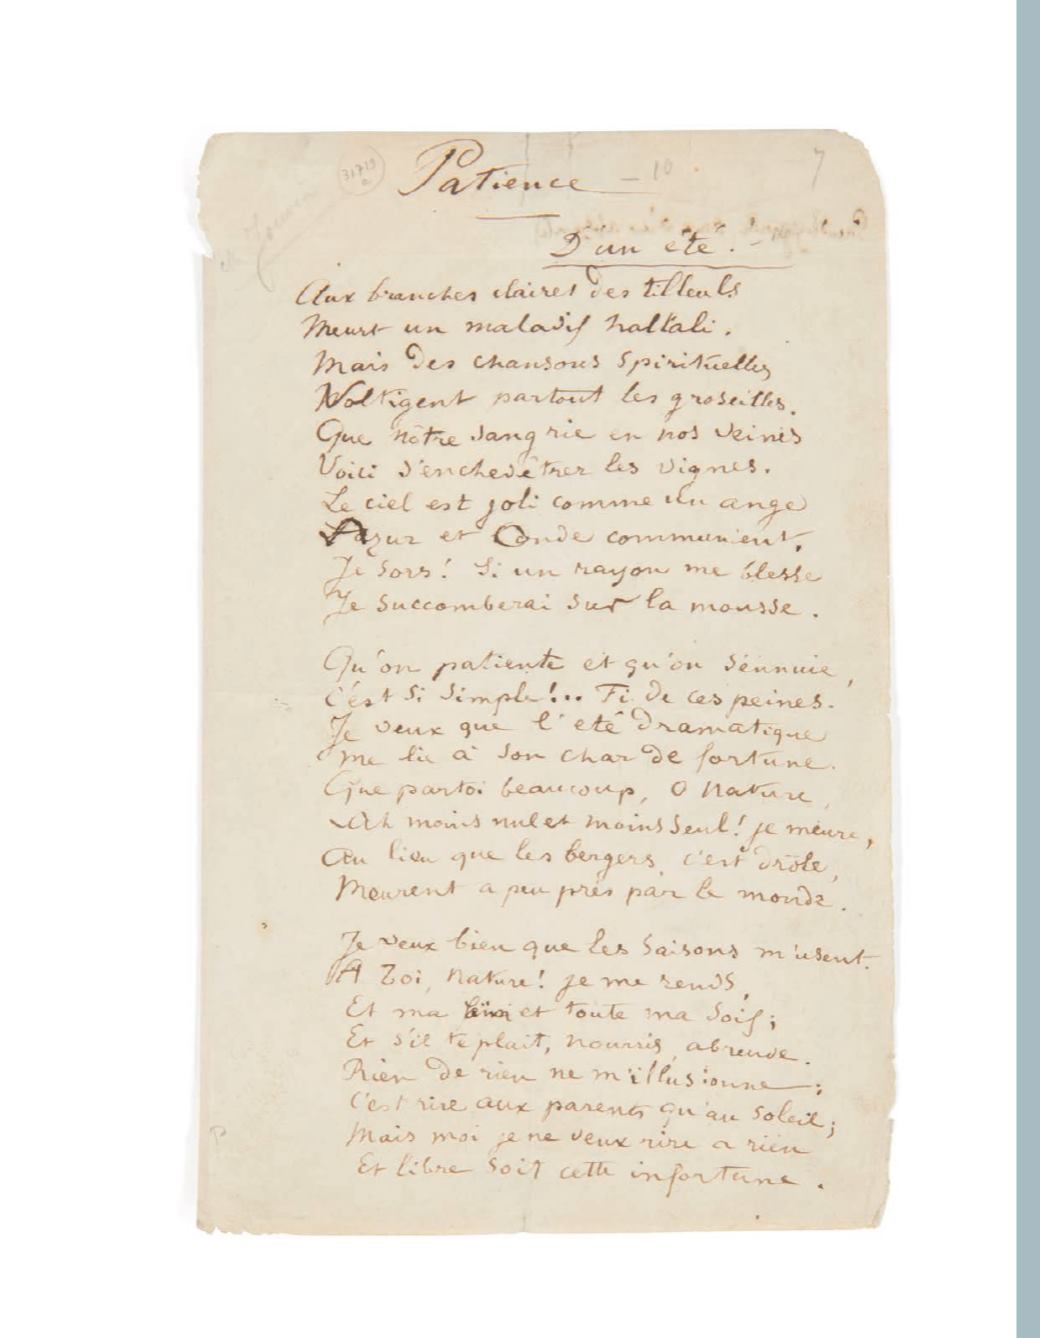 31719
a
Patience — 10
7
D'un été. -
Aux branches claires des tilleuls
Meurt un maladif hallali.
Mais des chansons spirituelles
Voltigent partout les groseilles.
Que nôtre sang rie en nos veines
Voici s'enchevêtrer les vignes.
Le ciel est joli comme un ange
Azur et Onde communient.
Je sors! Si un rayon me blesse
Je succomberai sur la mousse.
Qu'on patiente et qu'on s'ennuie,
C'est si simple!.. Fi de ces peines.
Je veux que l'été dramatique
Me lie à son char de fortune.
Que par toi beaucoup, O Nature,
Ah moins nul et moins seul! je meure,
Au lieu que les bergers, c'est drôle,
Meurent a peu près par le monde.
Je veux bien que les Saisons m'usent.
A Toi, Nature! je me rends,
Et ma faim et toute ma soif;
Et s'il te plait, nourris, abreuve.
Rien de rien ne m'illusionne;
C'est rire aux parents qu'au soleil;
Mais moi je ne veux rire a rien
Et libre soit cette infortune.